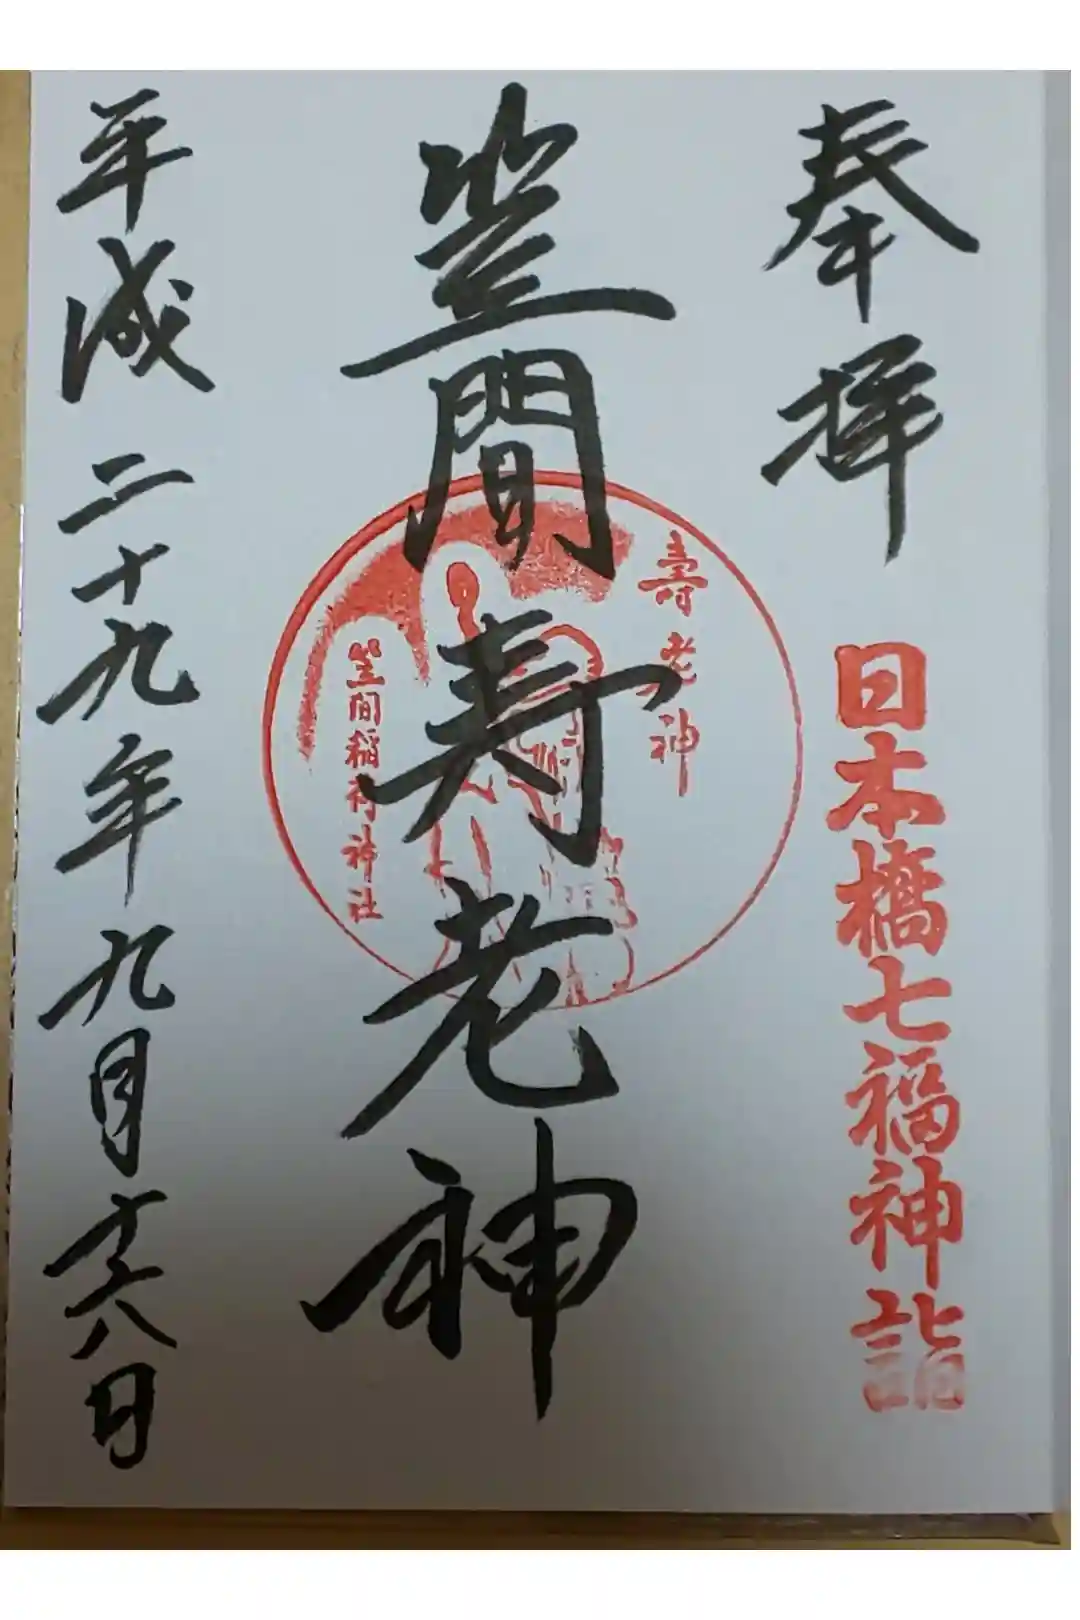 奉拝
日本橋七福神詣
笠間寿老神
壽老神
笠間稲荷神社
平成二十九年九月十六日